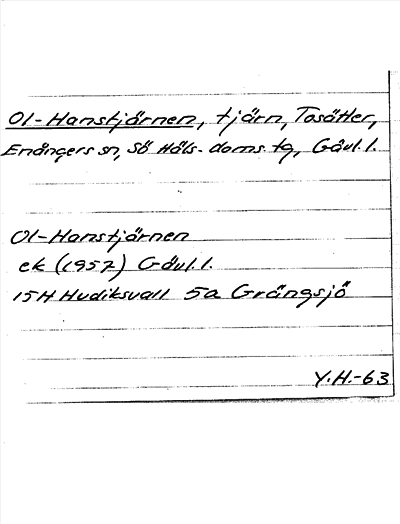 Ol-Hanstjärnen, tjärn, Tosätter,
Enångers sn, Sö Häls. doms. tg, Gävl.l.
Ol-Hanstjärnen
ek (1957) Gävl.l.
15H Hudiksvall 5a Grängsjö
Y.H.-63